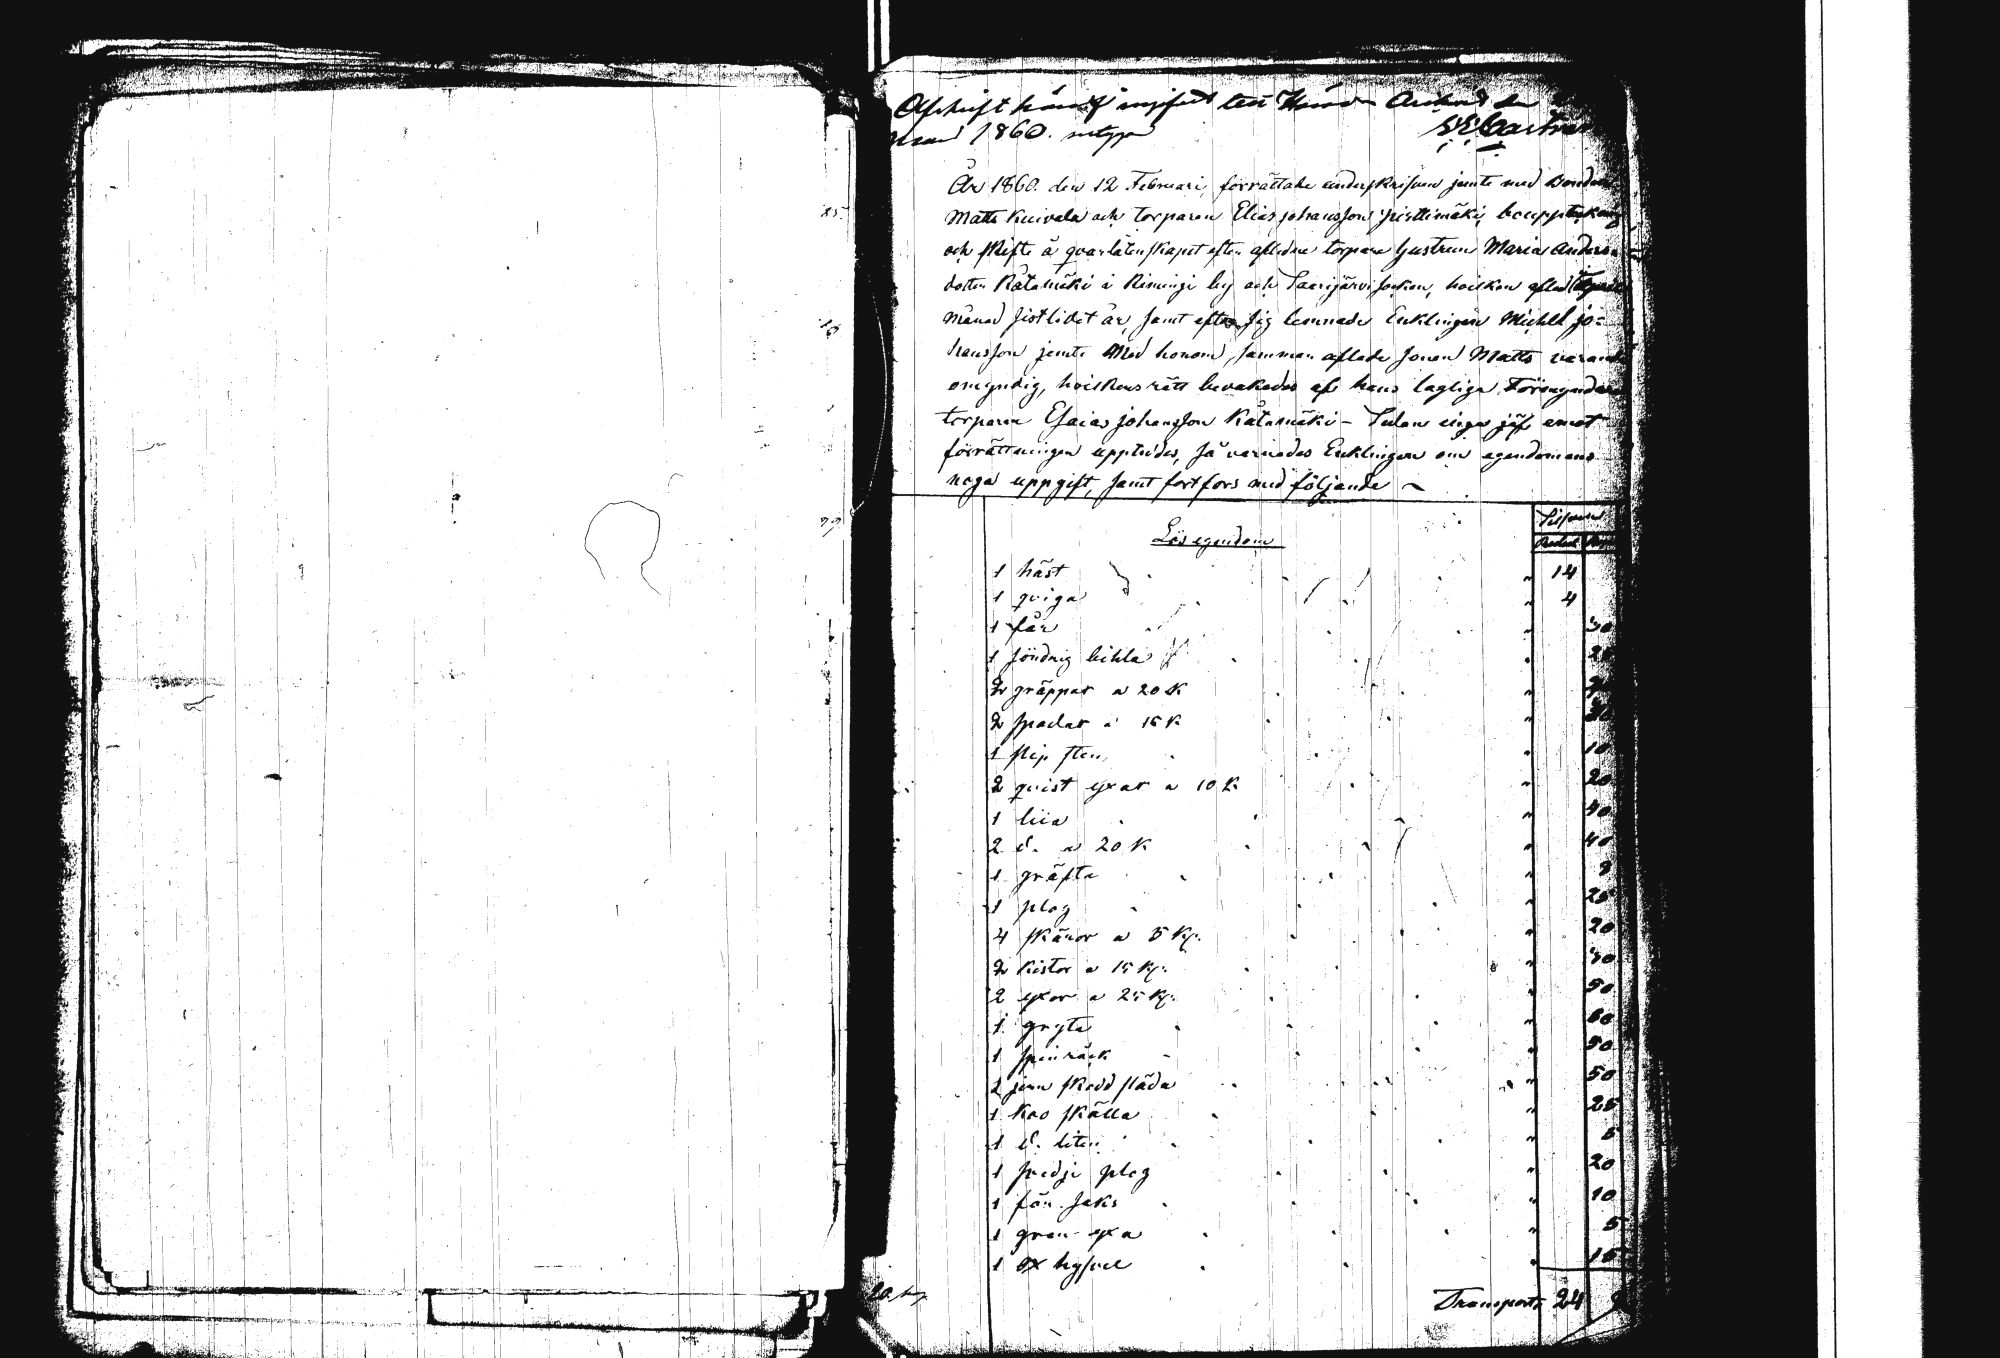 Afskrift häraf ingifvet till Härads Archivet den
1860. intygar
År 1860 den 12 Februari, förrättade underskrifven jemte med Bonden
Matts Kuivala och torparen Elias Johansson Pirttimäki, bouppteckning
och skifte å qvarlåtenskapet efter aflidne torpare hustrun Maria Anders-
dotter Råtamäki i Rimingi by och Saarijärvi Socken, hvilken afled
månad sistlidet år, samt efter sig lemnade Enklingen Michel Jo-
hansson jemte Med honom samman aflade sonen Matts varande
omyndig, hvilkens rätt bevakades af hans lagliga Förmyndare
torparen Esaias Johansson Råtamäki - Sedan inga jäf emot
förrättningen upptedes, så varnades Enklingen om egendomens
noga uppgift, samt fortfors med följande ~
Lös egendom
1 häst " 14
1 qviga " 4
1 får " 30
1 söndrig bibla "
2 gräppar a 20 K "
2 spadar a 15 K "
1 slip sten " 10
2 qvist yxar a 10 K " 20
1 liia " 40
2 d. a 20 K " 40
1 gräfta "
1 plog " 25
4 skäror a 5 Kp. " 20
2 kistor a 15 Kp. " 30
2 yxor a 25 Kp. " 50
1 gryta " 60
1 spinråck " 50
1 jern skodd släda " 50
1 koo skälla " 25
1 d. liten " 5
1 svedje plog " 20
1 får saks " 10
1 gran yxa " 5
1 ox hyfvel " 15
Transport 24